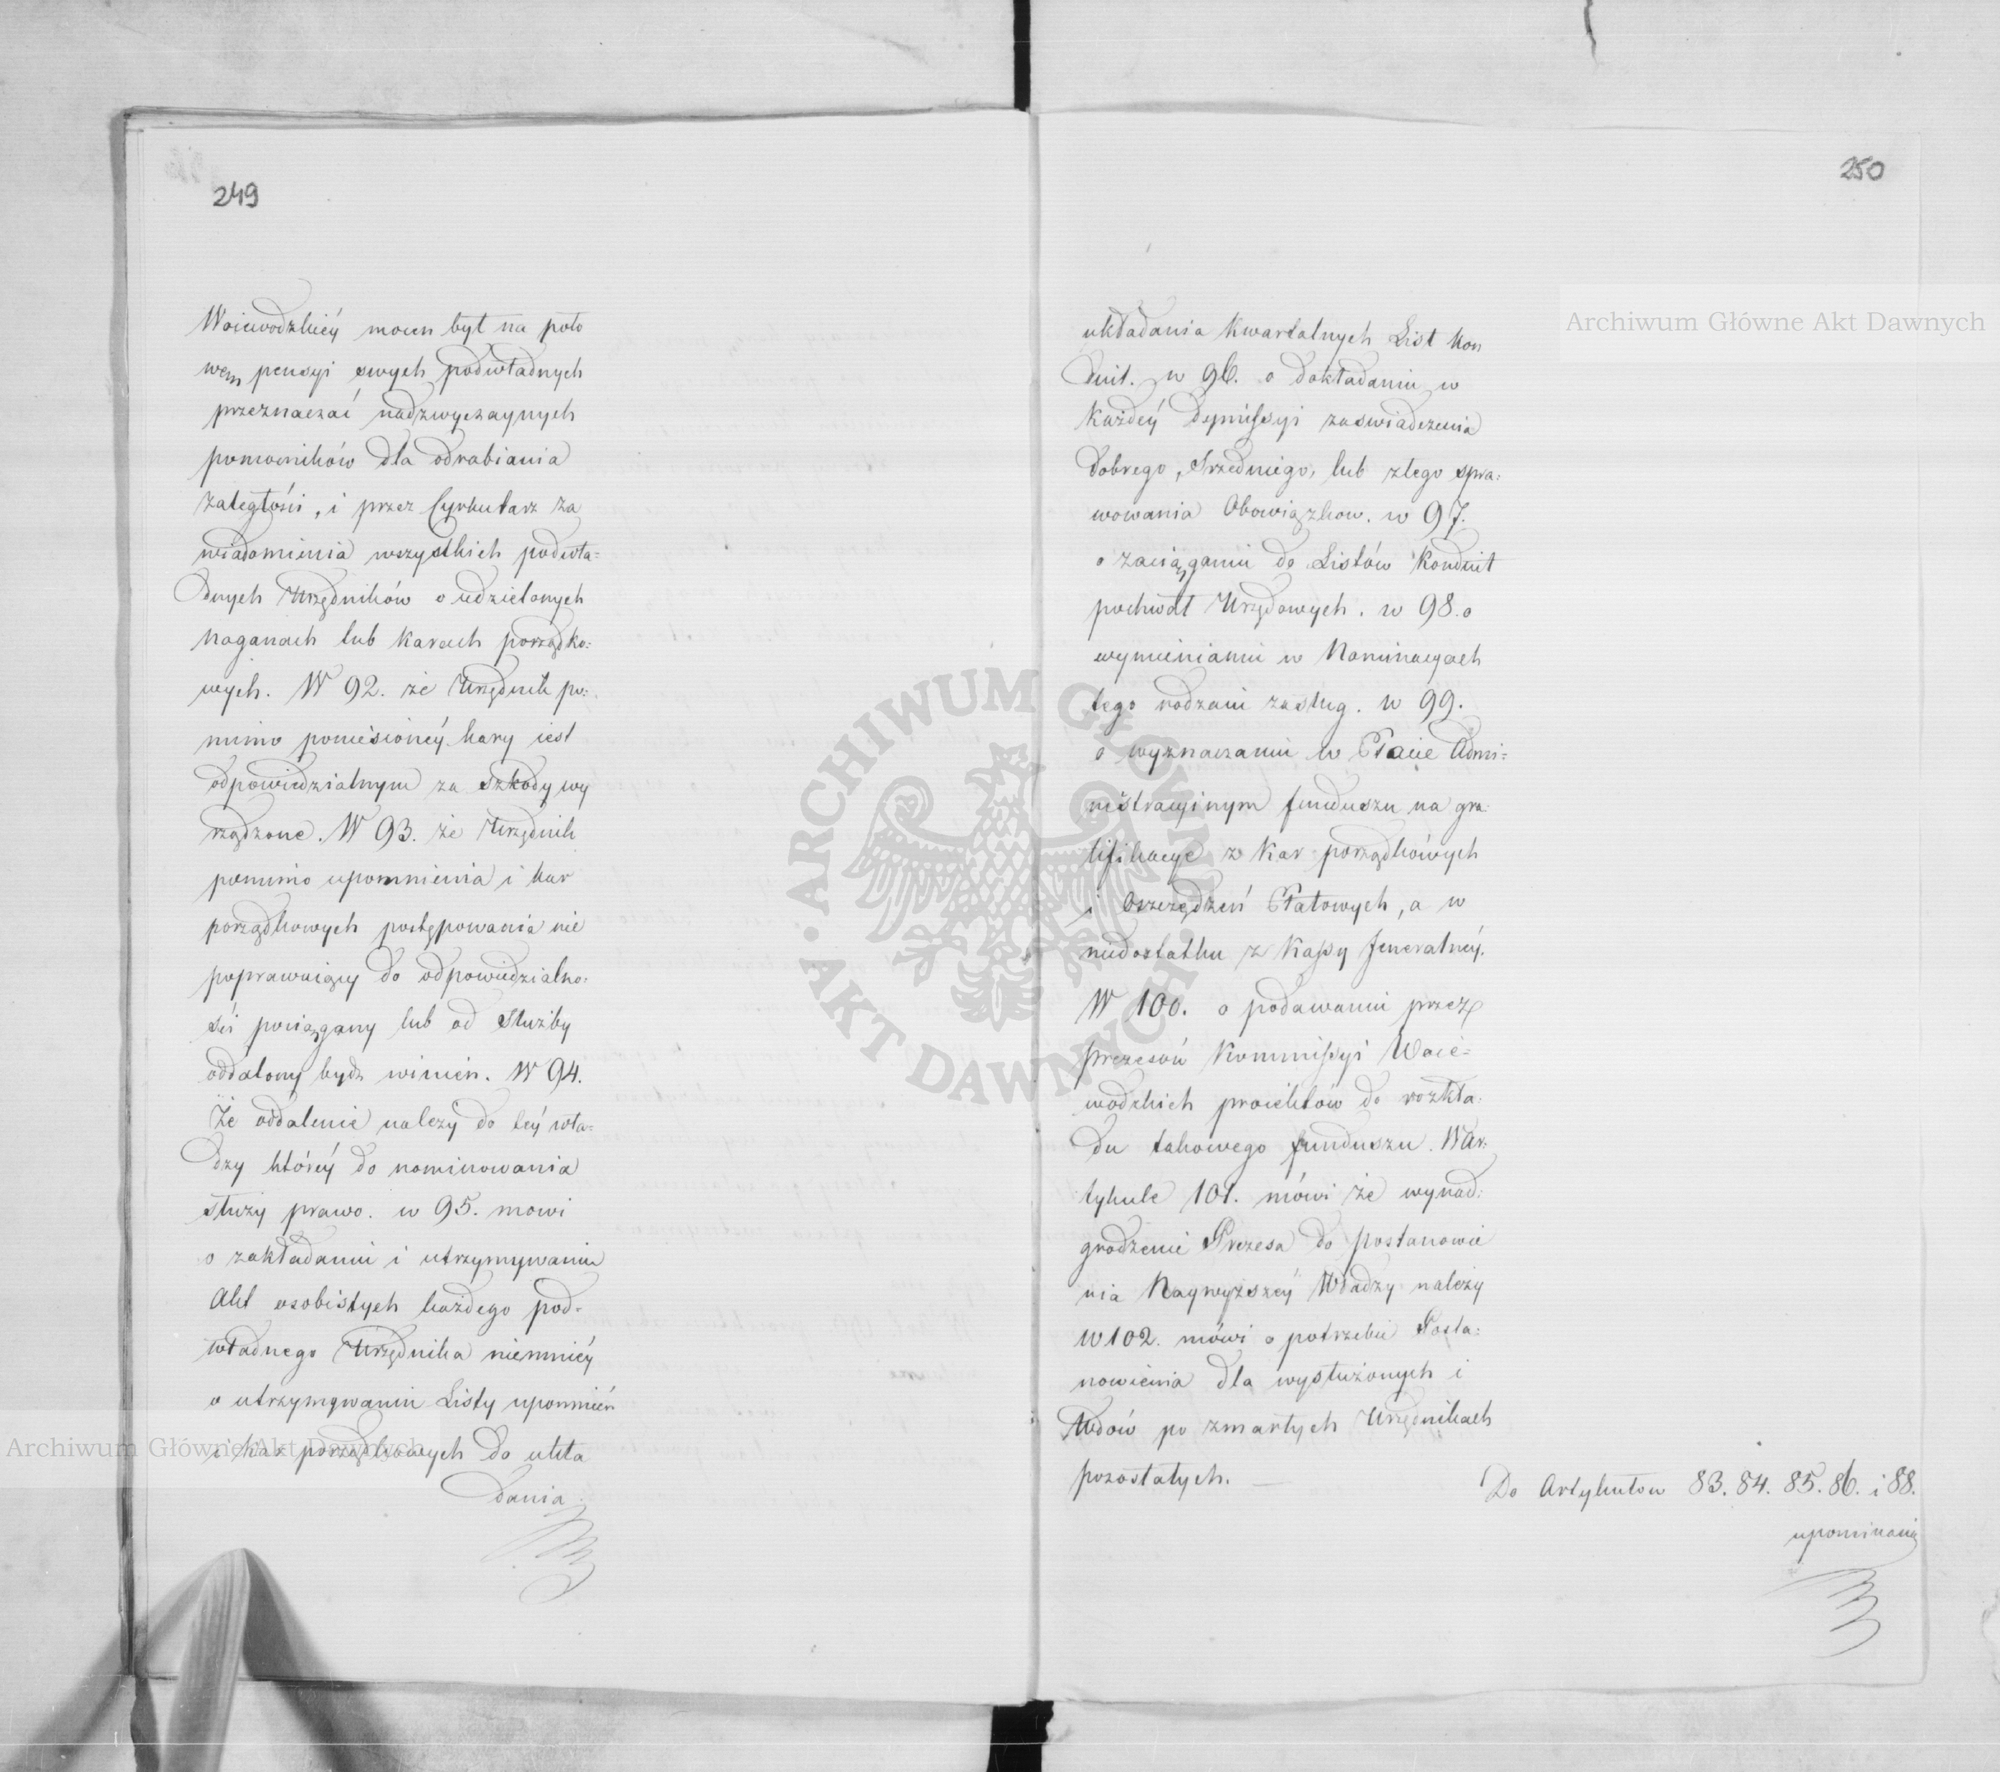 249
Woiewodzkiéy mocen był na poło
wem pensyi swych podwładnych
przeznaczać nadzwyczaynych
pomocników dla odrabiania
zaległości, i przez Cyrkularz za
wiadomienia wszystkich podwła=
dnych Urzędników o udzielonych
naganach lub karach porządko=
wych. W 92. że Urzędnik po=
mimo poniesionéy kary iest
odpowiedzialnym za szkody wy
rządzone. W 93. że Urzędnik
pomimo upomnienia i kar
porządkowych postępowania nie
poprawuiący do odpowiedzialno=
ści pociągany lub od służby
oddalony bydź winien. W 94.
Że oddalenie należy do téy wła=
dzy któréy do nominowania
służy prawo. w 95. mowi
o zakładaniu i utrzymywaniu
Akt osobistych każdego pod=
władnego Urzędnika niemniéy
o utrzymywaniu Listy upomnień
i kar porządkowych do ukła
dania
250
układania Kwartalnych List Kon
duit. w 96. o dokładaniu w
każdéy dymissyi zaswiadczenia
dobrego, srzedniego, lub złego spra=
wowania Obowiązkow. w 97.
o zaciąganiu do Listów Konduit
pochwał Urzędowych. w 98. o
wymienianiu w Nominacyach
tego rodzaiu zasług. w 99.
o wyznaczaniu w Etacie Admi=
nistracyinym funduszu na gra=
tifikacye z kar porządkówych
i oszczędzeń Etatowych, a w
niedostatku z Kassy Jeneralnéy.
W 100. o podawaniu przez
prezesów Kommissyi Woie=
wodzkich proiektów do rozkła=
du takowego funduszu. W Ar=
tykule 101. mówi że wynad=
grodzenie Prezesa do postanowie
nia Naywyższéy Władzy należy
w 102. mówi o potrzebie Posta=
nowienia dla wysłużonych i
Wdów po zmarłych Urzędnikach
pozostałych. —
Do Artykułow 83. 84. 85. 86. i 88.
upominania
Archiwum Główne Akt Dawnych
Archiwum Główne Akt Dawnych
ARCHIWUM GŁÓWNE · AKT DAWNYCH ·